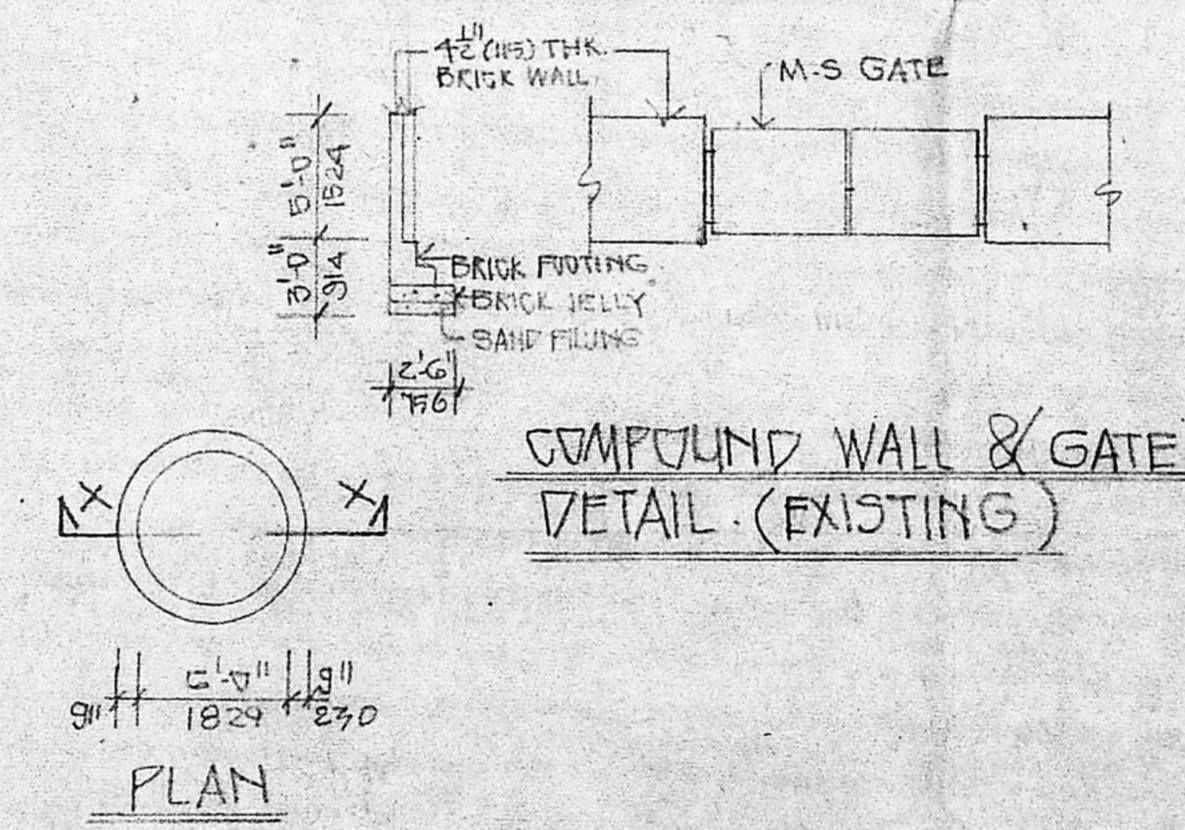 4½"(115) THK.
BRICK WALL
M-S GATE
5'-0"
1524
3'-0"
914
BRICK FOOTING
BRICK JELLY
SAND FILLING
2'-6"
756
COMPOUND WALL & GATE
DETAIL. (EXISTING)
X X
9" 6'-0" 9"
1829 230
PLAN